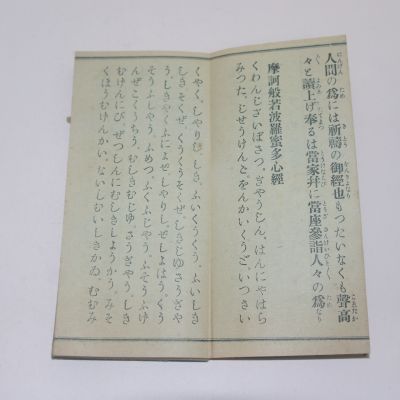 人間の爲には祈禱の御經也もつたいなくも聲高
々と讀上げ奉るは當家幷に當座參詣人々の爲
摩訶般若波羅蜜多心經
くわんじざいぼさつ。ぎやうじん はんにやはら
みつた。じせうけんと。をんかいくうご。いつさい
くやく。しやりし。しき、ふいくうくう。ふいしき
しきそくぜ。くうくうそくぜ。しきじゆさうぎや
う。しきやくふによぜしやりしぜしよはうくう
そうふしやう、ふめつ、ふくふじやう。ふそうふげ
んぜこくうちう。むしきむじゆ。さうぎやう。しき
むけんにび。ぜつしんにむしきしようかう。みそ
くほうむけんかい。ないしむいしきかゐ。むむみ